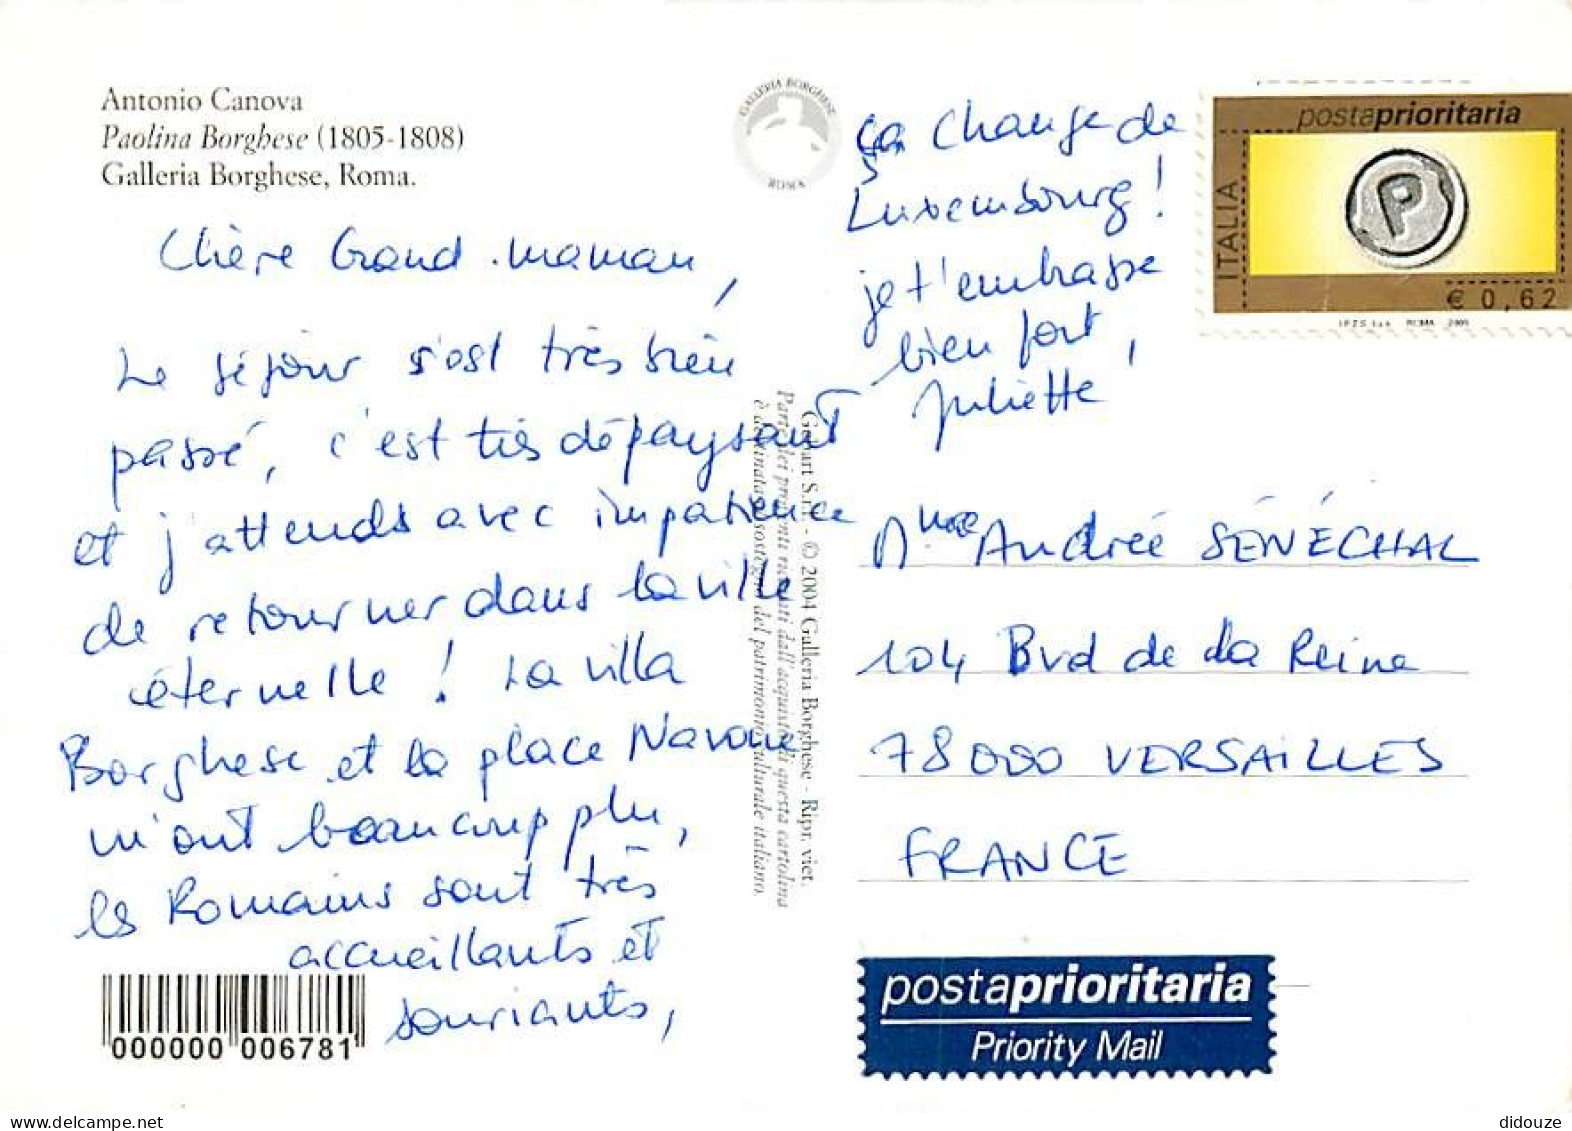 Antonio Canova
Paolina Borghese (1805-1808)
Galleria Borghese, Roma.
GALLERIA BORGHESE
ROMA
Chère Grand-maman,
Le séjour s'est très bien
passé, c'est très dépaysant
et j'attends avec impatience
de retourner dans la ville
éternelle ! La villa
Borghese et la place Navone
m'ont beaucoup plu,
les Romains sont très
accueillants et
souriants,
ça change de
Luxembourg !
je t'embrasse
bien fort,
Juliette
000000 006781
© 2004 Galleria Borghese - Ripr. viet.
Parte dei proventi ricavati dall'acquisto di questa cartolina
è destinata a sostegno del patrimonio culturale italiano.
postaprioritaria
ITALIA
P
€ 0,62
I.P.Z.S. S.p.A. ROMA 2005
Mme Andrée SÉNÉCHAL
104 Bvd de la Reine
78000 VERSAILLES
FRANCE
postaprioritaria
Priority Mail
didouze